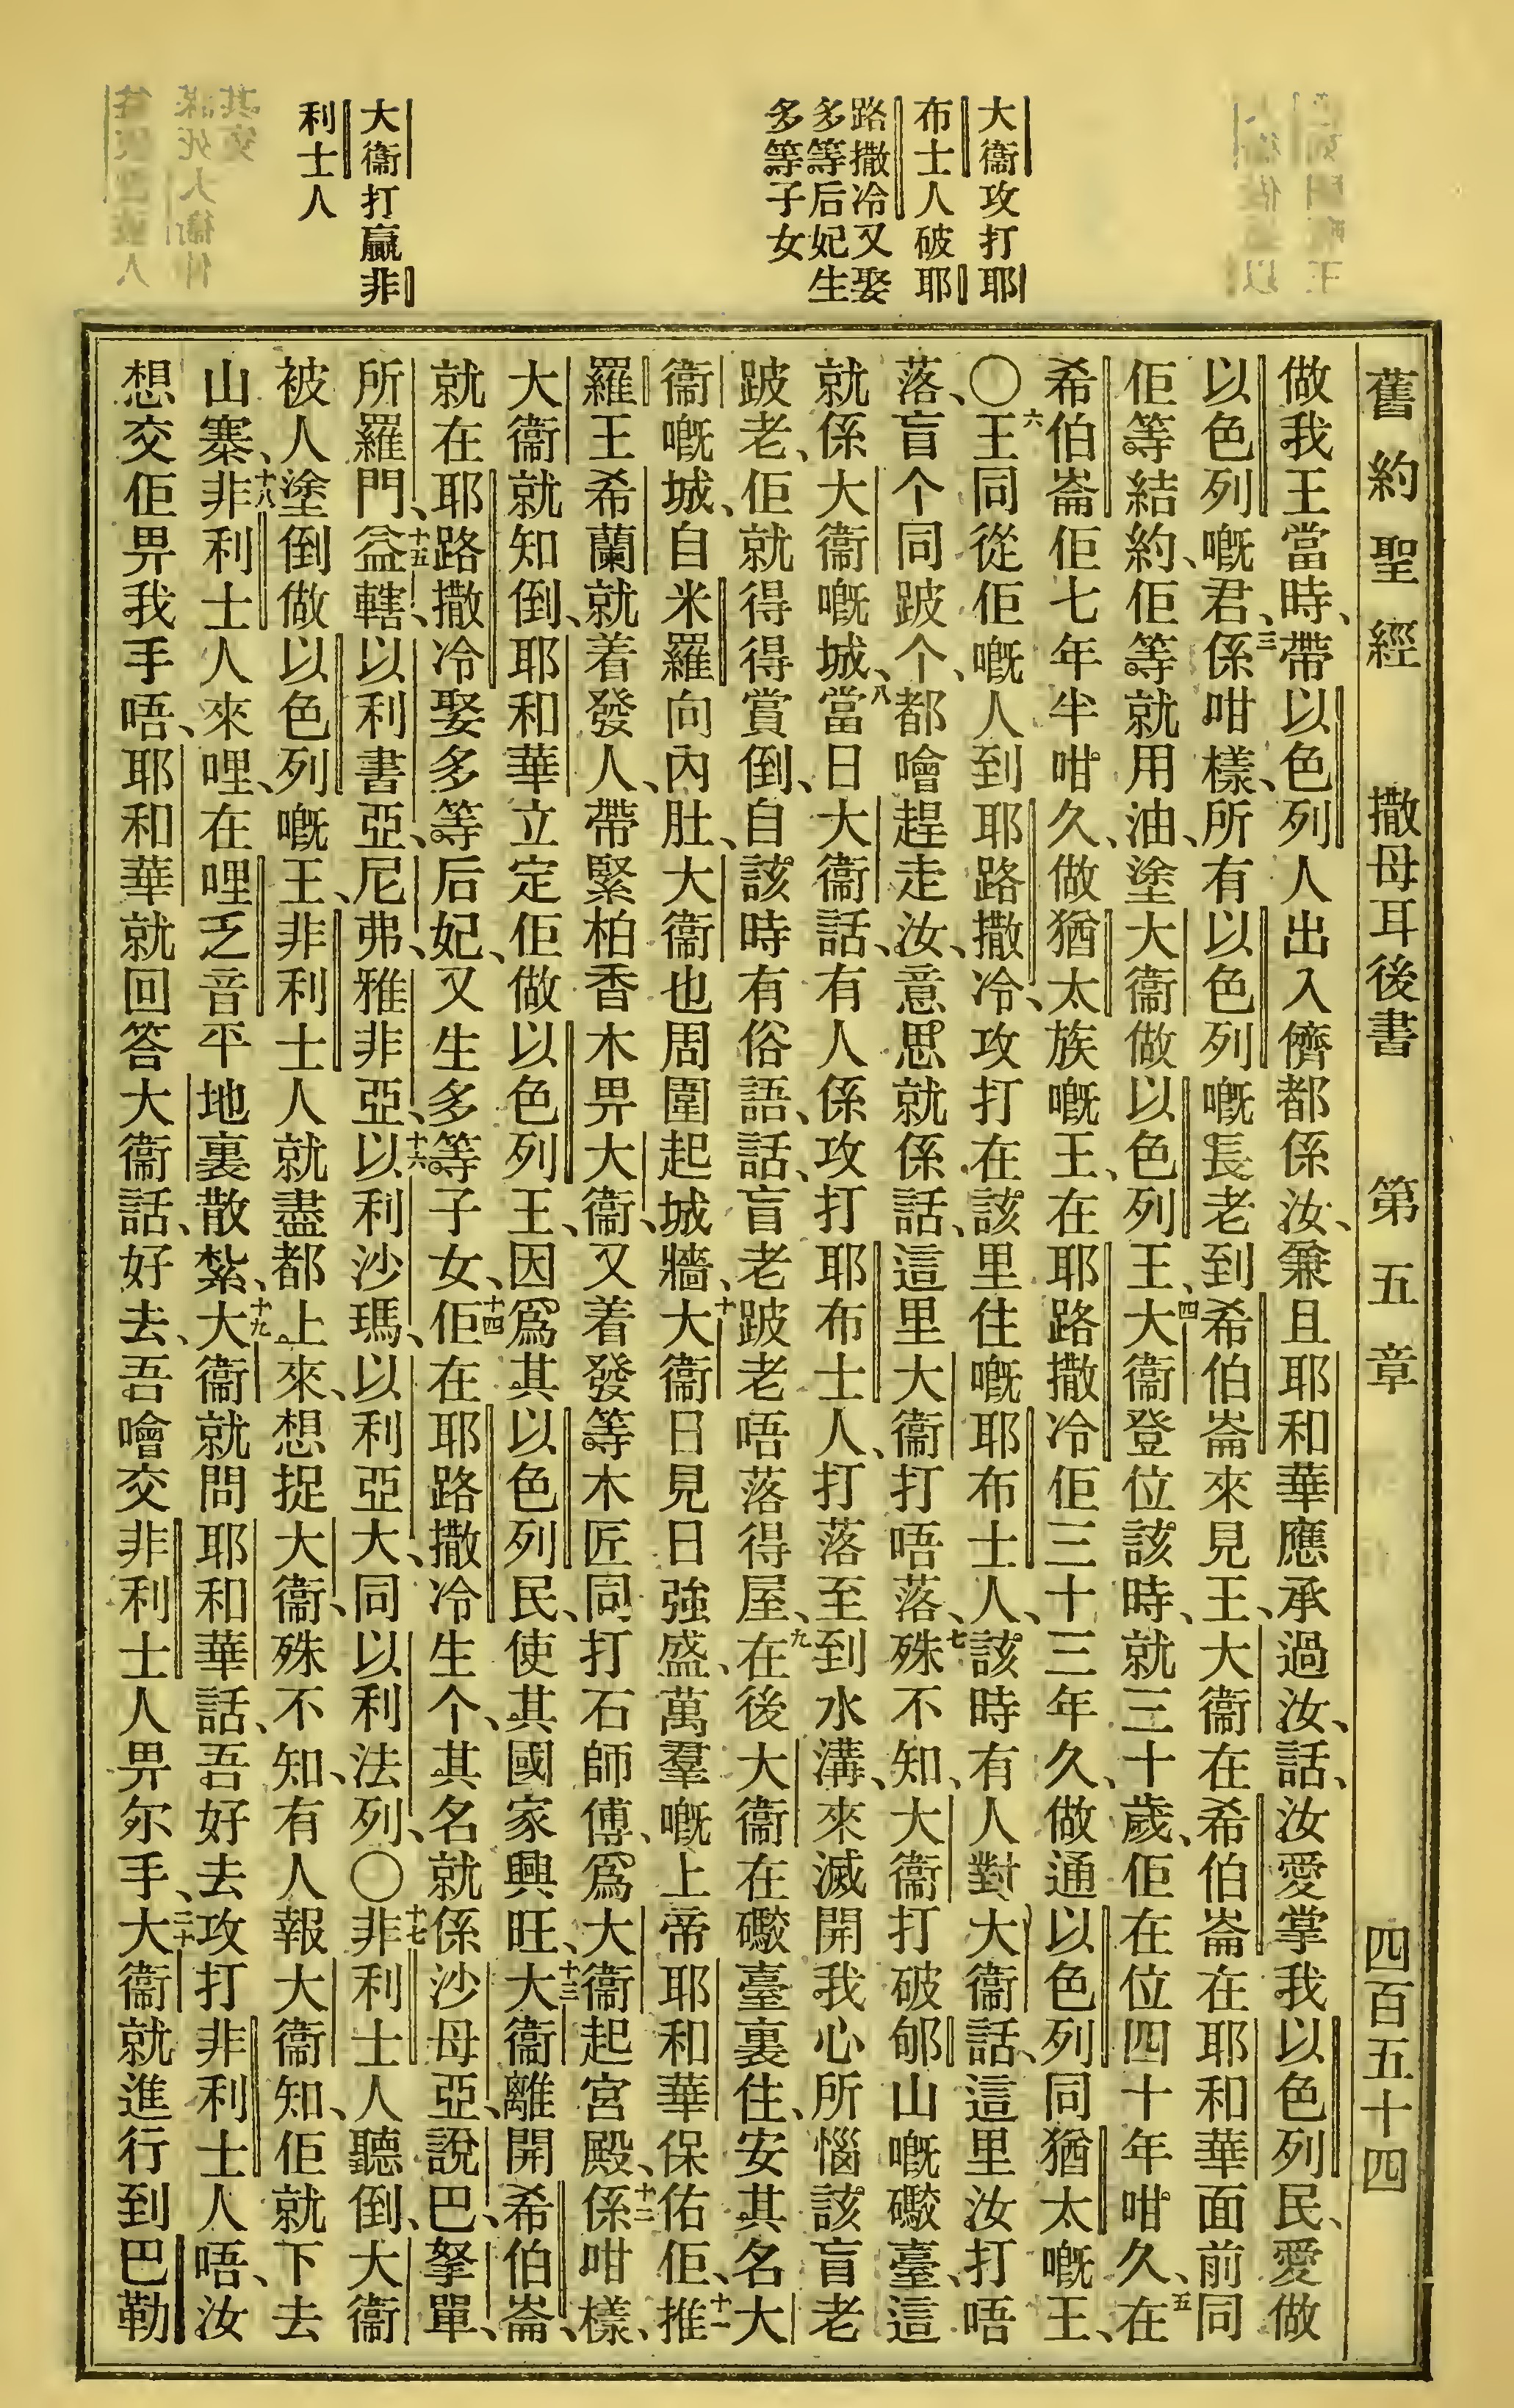 大衞攻打耶
布士人破耶
路撒冷又娶
多等后妃生
多等子女
大衞打贏非
利士人
舊約聖經 撒母耳後書 第五章 四百五十四
做我王當時、帶以色列人出入儕都係汝、兼且耶和華應承過汝、話、汝愛掌我以色列民、愛做
以色列嘅君、三係咁樣、所有以色列嘅長老到希伯崙來見王、大衞在希伯崙在耶和華面前同
佢等結約、佢等就用油、塗大衞做以色列王、四大衞登位該時、就三十歲、佢在位四十年咁久、五在
希伯崙佢七年半咁久、做猶太族嘅王、在耶路撒冷佢三十三年久、做通以色列同猶太嘅王、
〇六王同從佢嘅人到耶路撒冷、攻打在該里住嘅耶布士人、該時有人對大衞話、這里汝打唔
落、盲个同跛个、都噲趕走汝、意思就係話、這里大衞打唔落、七殊不知、大衞打破郇山嘅礮臺、這
就係大衞嘅城、八當日大衞話、有人係攻打耶布士人、打落至到水溝、來滅開我心所惱該盲老
跛老、佢就得得賞倒、自該時有俗語、話、盲老跛老唔落得屋、九在後大衞在礮臺裏住、安其名大
衞嘅城、自米羅向內肚、大衞也周圍起城牆、十大衞日見日強盛、萬羣嘅上帝耶和華保佑佢、十一推
羅王希蘭就着發人、帶緊柏香木畀大衞、又着發等木匠同打石師傅、爲大衞起宮殿、十二係咁樣、
大衞就知倒、耶和華立定佢做以色列王、因爲其以色列民、使其國家興旺、十三大衞離開希伯崙、
就在耶路撒冷娶多等后妃、又生多等子女、十四佢在耶路撒冷生个、其名就係沙母亞、說巴、拏單、
所羅門、十五益轄、以利書亞、尼弗、雅非亞、十六以利沙瑪、以利亞大、同以利法列、〇十七非利士人聽倒、大衞
被人塗倒做以色列嘅王、非利士人就盡都上來、想捉大衞、殊不知、有人報大衞知、佢就下去
山寨、十八非利士人來哩、在哩乏音平地裏散紮、十九大衞就問耶和華話、吾好去攻打非利士人唔、汝
想交佢畀我手唔、耶和華就回答大衞話、好去、吾噲交非利士人畀尔手、二十大衞就進行到巴勒